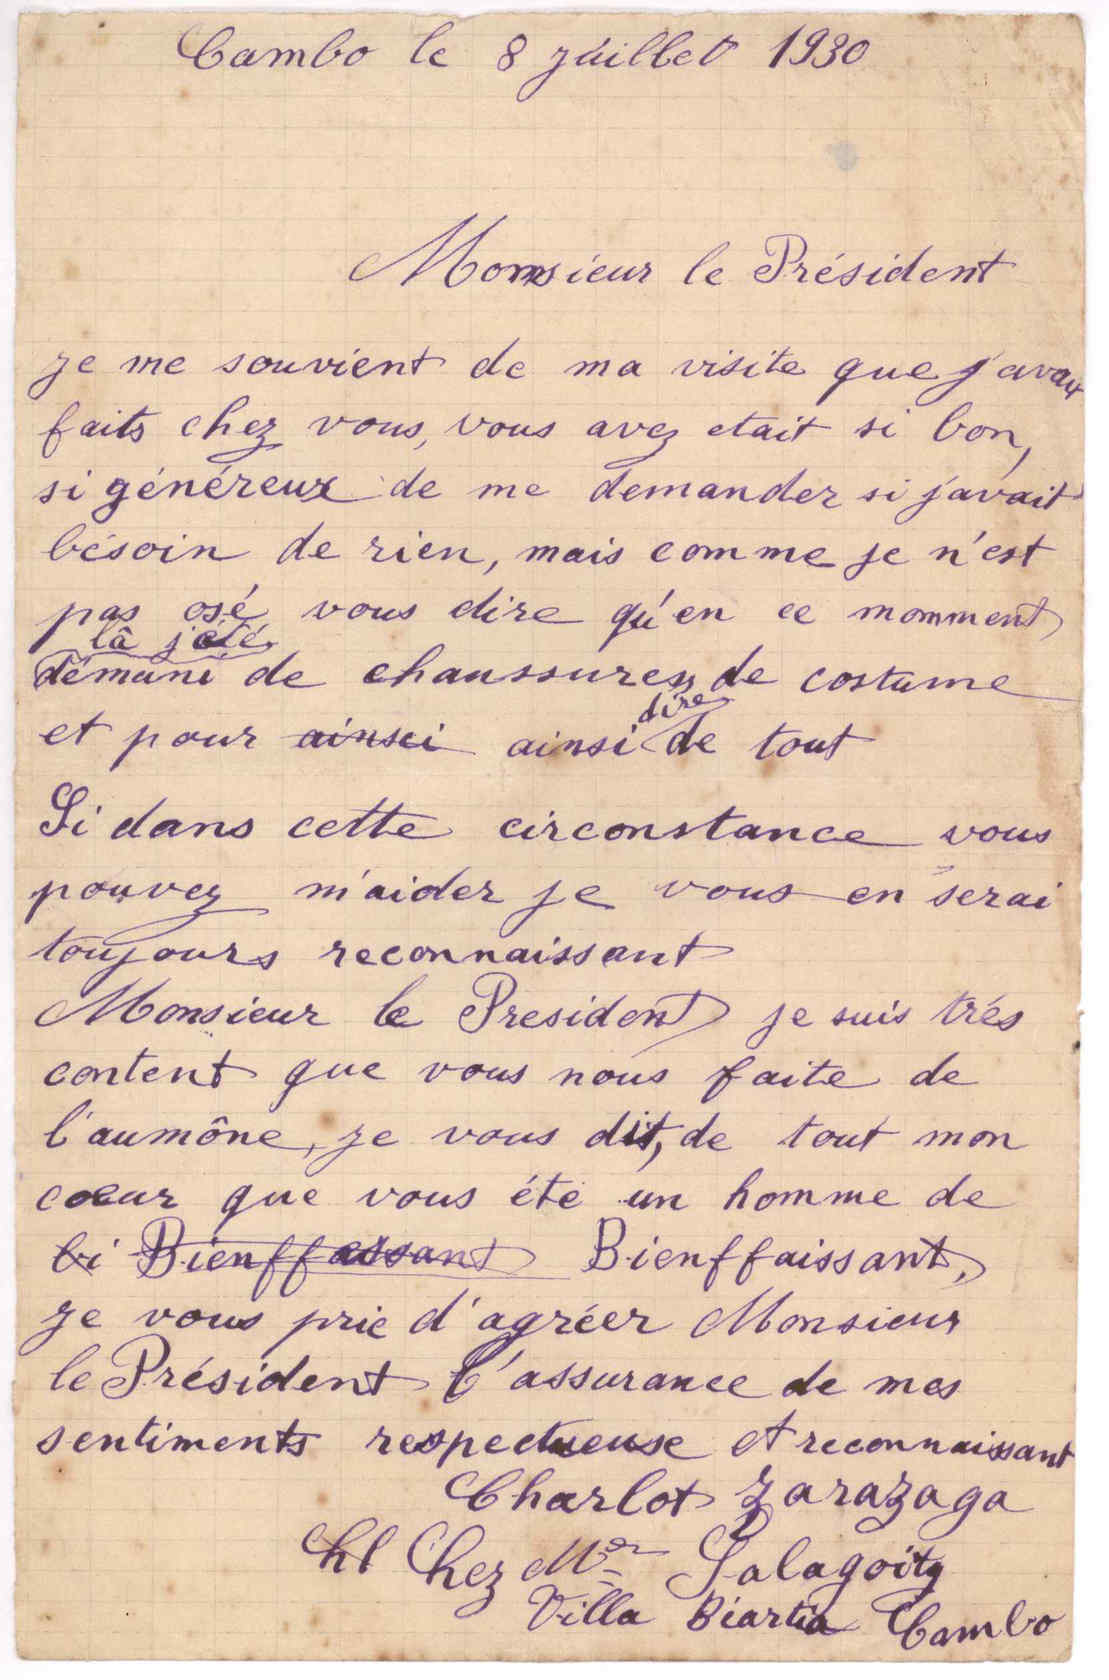 Cambo le 8 juillet 1930
Monsieur le Président
je me souvient de ma visite que j'avais
faits chez vous, vous avez etait si bon,
si généreux de me demander si j'avait
bésoin de rien, mais comme je n'est
pas osé vous dire qu'en ce momment
là j'eté
démuni de chaussures, de costume
et pour ainsi ainsi dire de tout
Si dans cette circonstance vous
pouvez m'aider je vous en serai
toujours reconnaissant
Monsieur le President je suis trés
content que vous nous faite de
l'aumône, je vous dit, de tout mon
coeur que vous été un homme de
bi Bienffassant Bienffaissant,
je vous prie d'agréer Monsieur
le Président l'assurance de mes
sentiments respectueuse et reconnaissant
Charlot Zarazaga
Chez Mr Salagoity
Villa Biartia Cambo